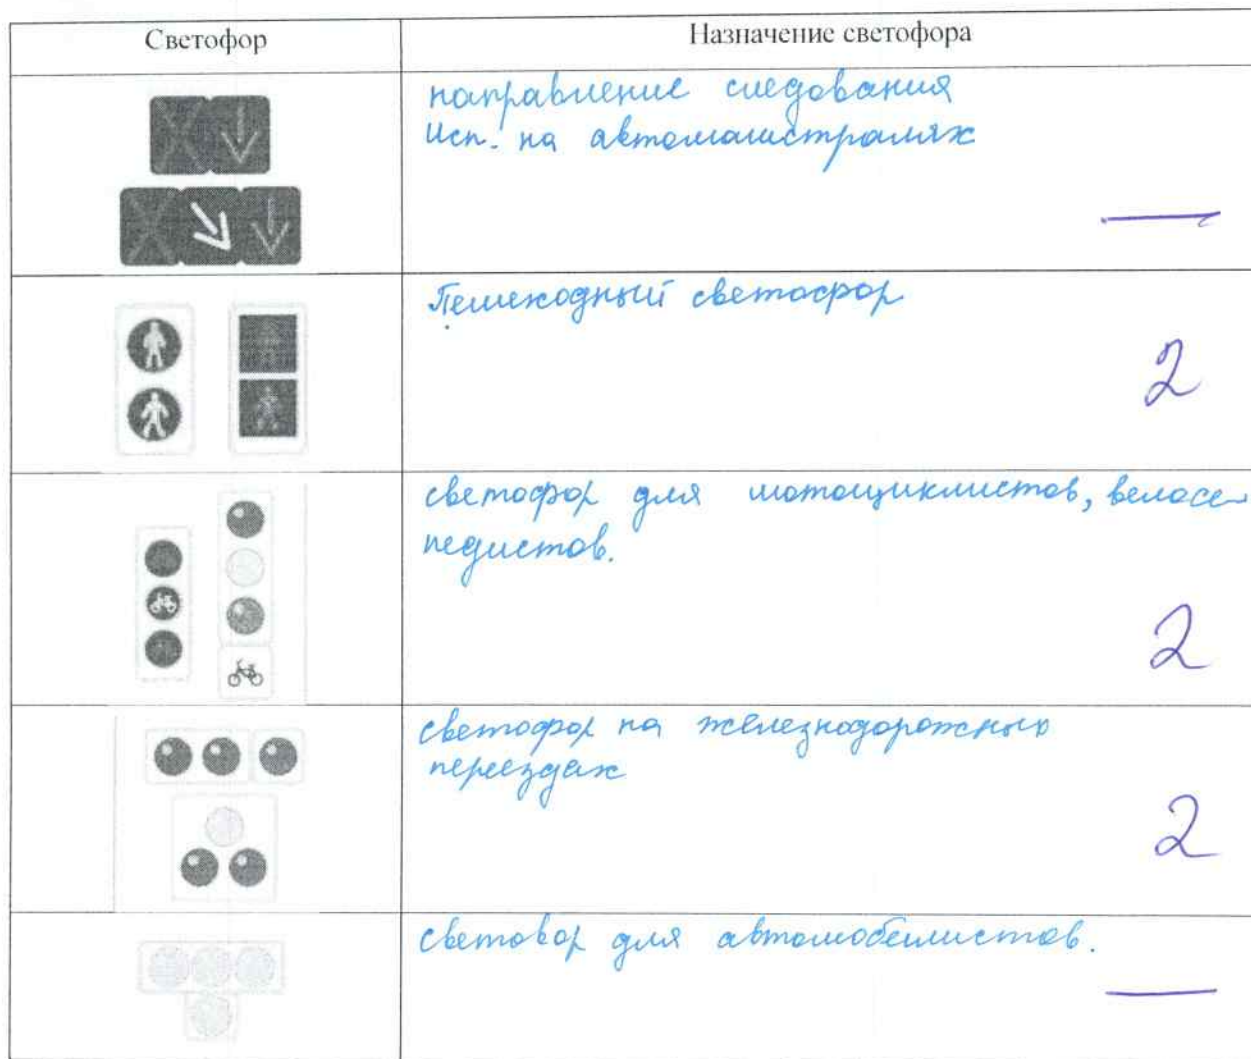 Светофор
Назначение светофора
направление следования
Исп. на автомагистралях
—
Пешеходный светофор
2
светофор для мотоциклистов, велосе-
педистов.
2
светофор на железнодорожных
переездах
2
световор для автомобилистов.
—